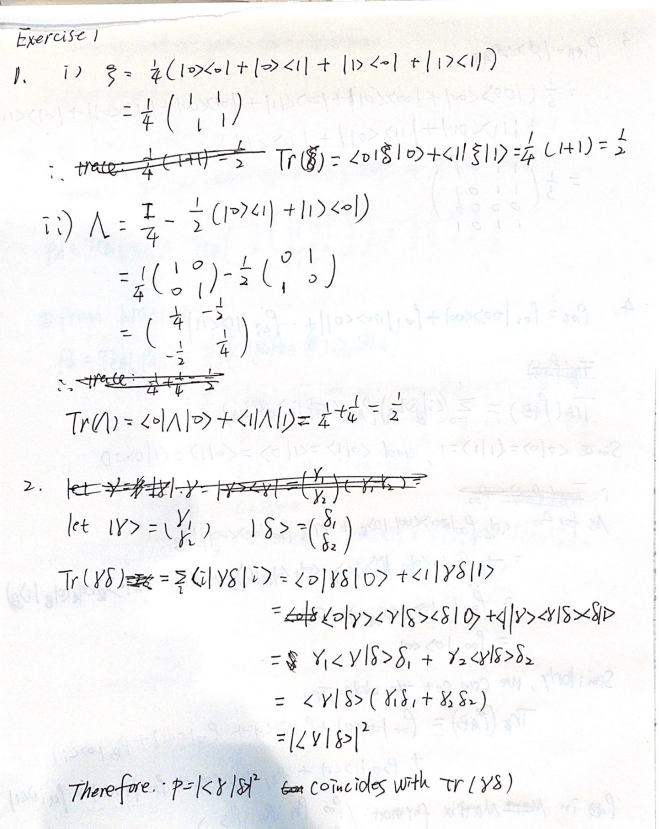 Exercise 1
1. i) ξ = 1/4 (|0><0| + |0><1| + |1><0| + |1><1|)
= 1/4 ( 1 1 / 1 1 )
∴ Tr(ξ) = <0|ξ|0> + <1|ξ|1> = 1/4 (1+1) = 1/2
ii) Λ = I/4 - 1/2 (|0><1| + |1><0|)
= 1/4 ( 1 0 / 0 1 ) - 1/2 ( 0 1 / 1 0 )
= ( 1/4 -1/2 / -1/2 1/4 )
∴
Tr(Λ) = <0|Λ|0> + <1|Λ|1> = 1/4 + 1/4 = 1/2
2.
let |γ> = ( γ1 / γ2 ) |δ> = ( δ1 / δ2 )
Tr(γδ) = Σi <i|γδ|i> = <0|γδ|0> + <1|γδ|1>
= <0|γ><γ|δ><δ|0> + <1|γ><γ|δ><δ|1>
= γ1 <γ|δ> δ1 + γ2 <γ|δ> δ2
= <γ|δ> (γ1δ1 + γ2δ2)
= |<γ|δ>|²
Therefore. p = |<γ|δ>|² coincides with Tr(γδ)